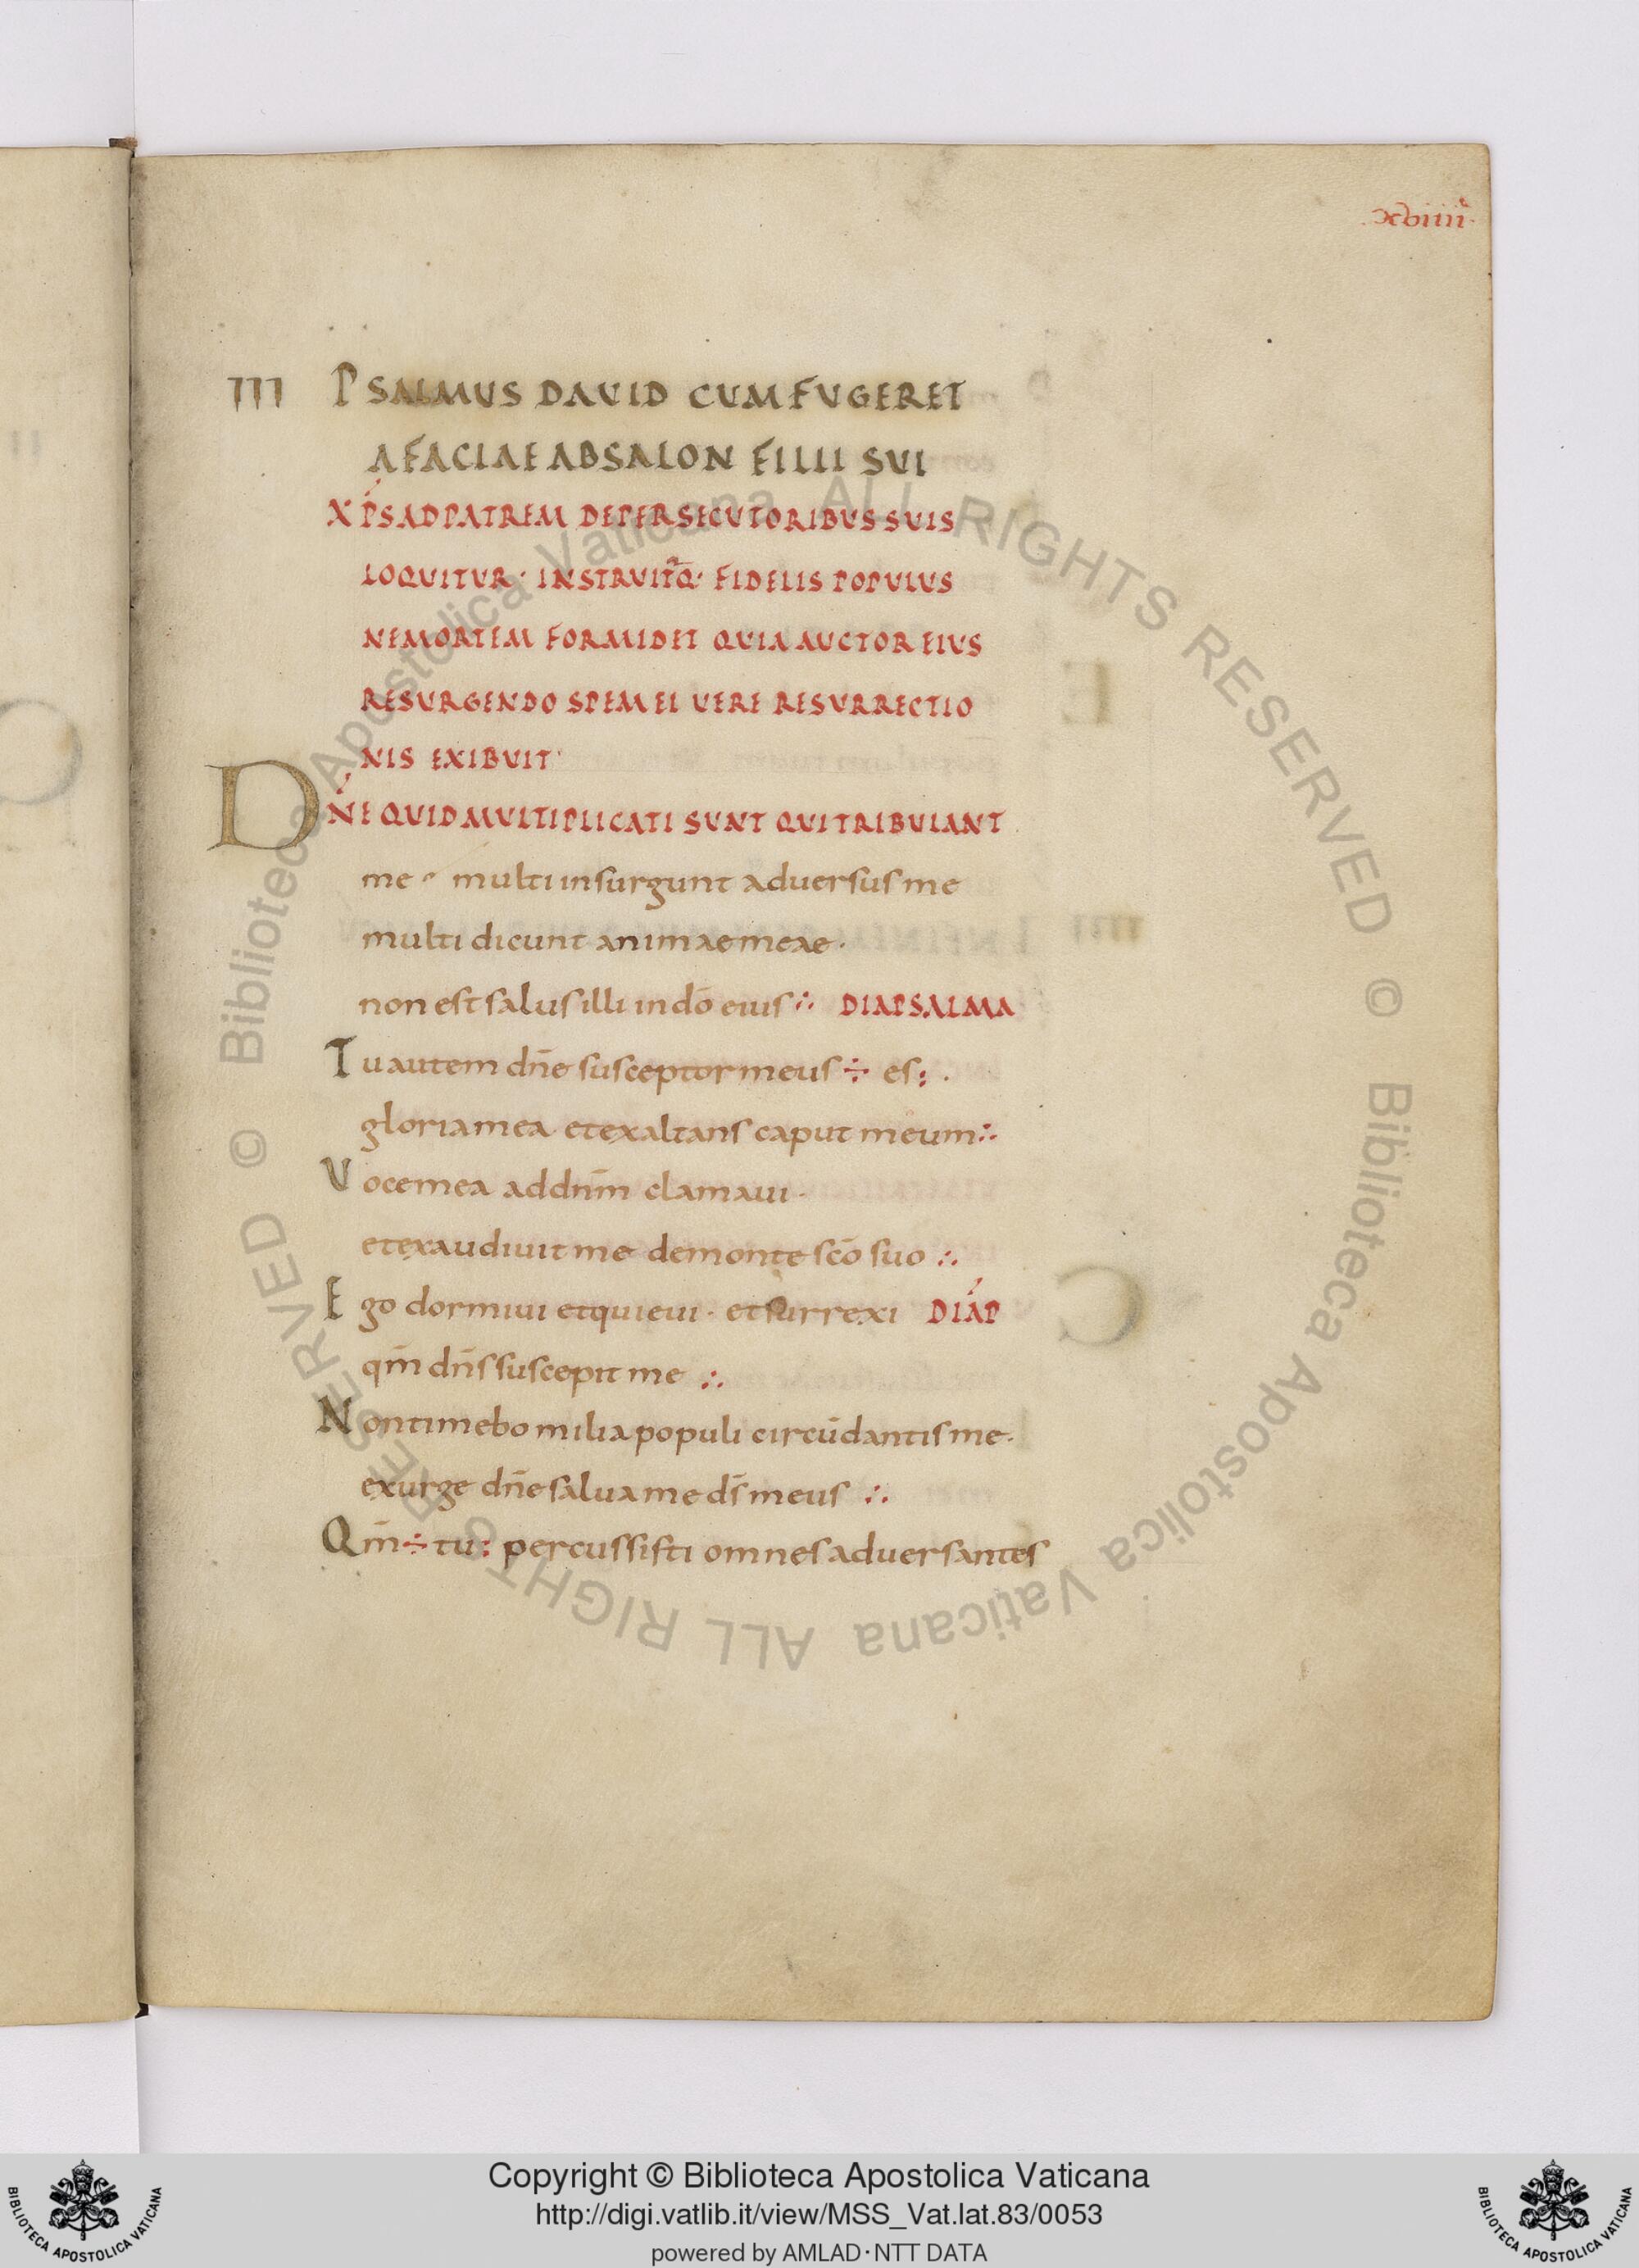 .xviiii.
III PSALMUS DAVID CUM FUGERET
A FACIAE ABSALON FILII SUI
XP̄S AD PATREM DE PERSECUTORIBUS SUIS
LOQUITUR· INSTRUITQ̄· FIDELIS POPULUS
NE MORTEM FORMIDET QUIA AUCTOR EIUS
RESURGENDO SPEM EI VERE RESURRECTIO
NIS EXIBUIT·
DN̄E QUID MULTIPLICATI SUNT QUI TRIBULANT
me multi insurgunt adversus me
multi dicunt animae meae·
non est salus illi in dō eius ∴ DIAPSALMA
Tu autem dn̄e susceptor meus ÷ es: .
gloria mea et exaltans caput meum ∴
Voce mea ad dn̄m clamavi·
et exaudivit me de monte sc̄o suo ∴
Ego dormivi et quievi· et surrexi DIAP
qm̄ dn̄s suscepit me ∴
Non timebo milia populi circūdantis me·
exurge dn̄e salva me ds̄ meus ∴
Qm̄ ÷ tu: percussisti omnes adversantes
© Biblioteca Apostolica Vaticana ALL RIGHTS RESERVED © Biblioteca Apostolica Vaticana ALL RIGHTS RESERVED
Copyright © Biblioteca Apostolica Vaticana
http://digi.vatlib.it/view/MSS_Vat.lat.83/0053
powered by AMLAD·NTT DATA
BIBLIOTECA APOSTOLICA VATICANA
BIBLIOTECA APOSTOLICA VATICANA